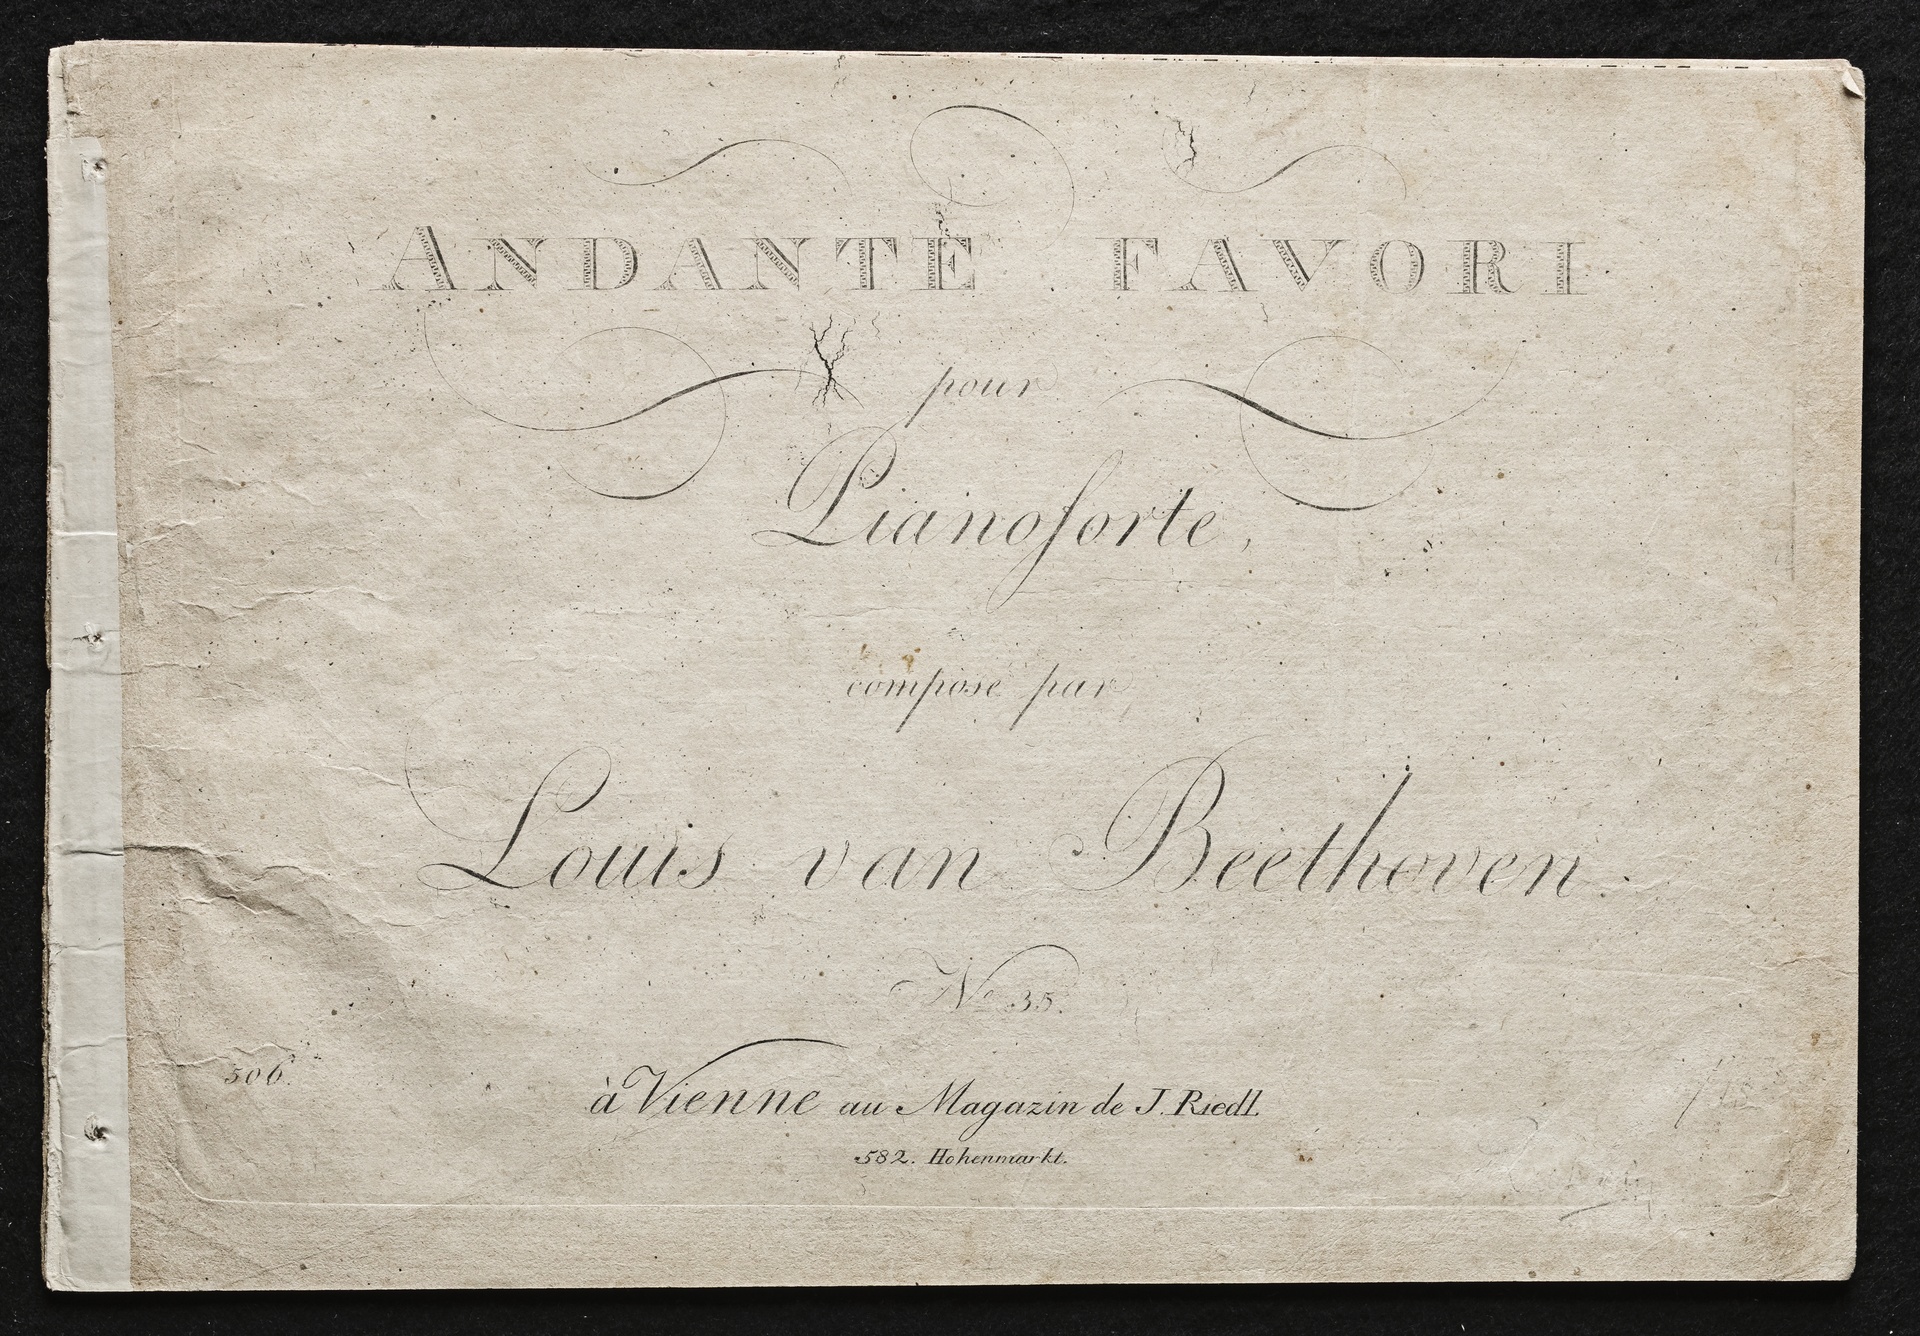 ANDANTE FAVORI
pour
Pianoforte,
composé par
Louis van Beethoven.
No 35.
506.
à Vienne au Magazin de J. Riedl.
582. Hohenmarkt.